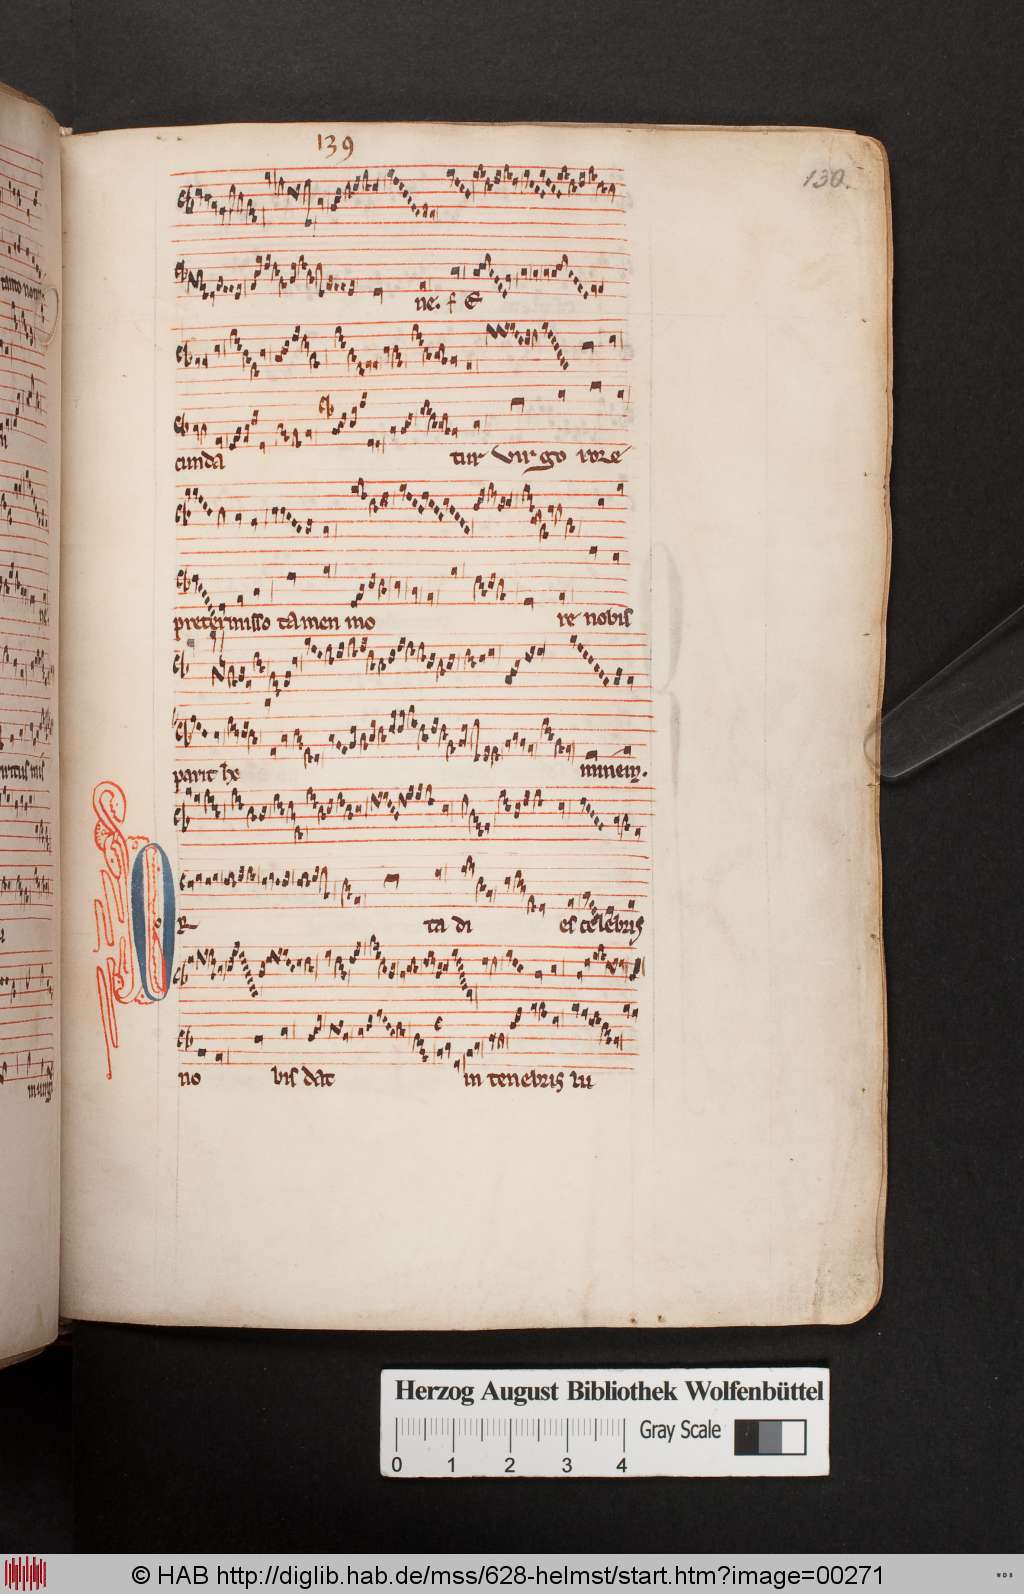 139
130.
ne. f E
cunda tur virgo rore
pretermisso tamen mo re nobis
parit ho minem.
O R ta di es celebris
no bis dat in tenebris lu
Herzog August Bibliothek Wolfenbüttel
Gray Scale
0 1 2 3 4
© HAB http://diglib.hab.de/mss/628-helmst/start.htm?image=00271